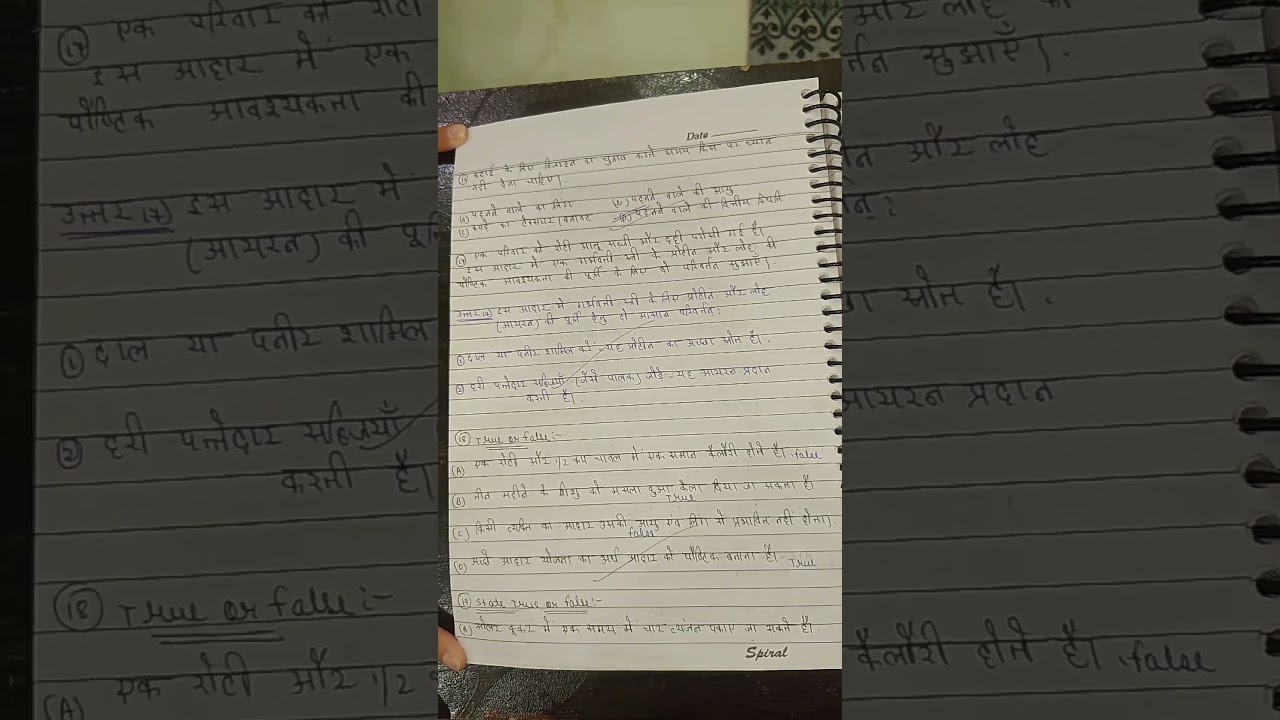 Date
(16) कढ़ाई के लिए डिजाइन का चुनाव करते समय किस पर ध्यान
नहीं देना चाहिए।
(a) पहनने वाले का लिंग (b) पहनने वाले की आयु
(c) कपड़े का टेक्सचर/बनावट (d) पहनने वाले की वित्तीय स्थिति
(17) एक परिवार को रोटी आलू सब्जी और दही परोसी गई है।
इस आहार में एक गर्भवती स्त्री के प्रोटीन और लोह की
पौष्टिक आवश्यकता की पूर्ति के लिए दो परिवर्तन सुझाएँ।
उत्तर 17) इस आहार में गर्भवती स्त्री के लिए प्रोटीन और लोह
(आयरन) की पूर्ति हेतु दो आसान परिवर्तन:
① दाल या पनीर शामिल करें - यह प्रोटीन का अच्छा स्रोत है।
② हरी पत्तेदार सब्जियाँ (जैसे पालक) जोड़े - यह आयरन प्रदान
करती है।
(18) True or false:-
(A) एक रोटी और 1/2 कप चावल में एक समान कैलोरी होते है। false
(B) तीन महीने के शिशु को मसला हुआ केला दिया जा सकता है।
True
(C) किसी व्यक्ति का आहार उसकी आयु एवं लिंग से प्रभावित नहीं होता।
false
(D) अच्छे आहार योजना का अर्थ आहार को पौष्टिक बनाना है। True
(19) State True or false:-
(A) सोलर कूकर में एक समय में चार व्यंजन पकाए जा सकते है।
Spiral